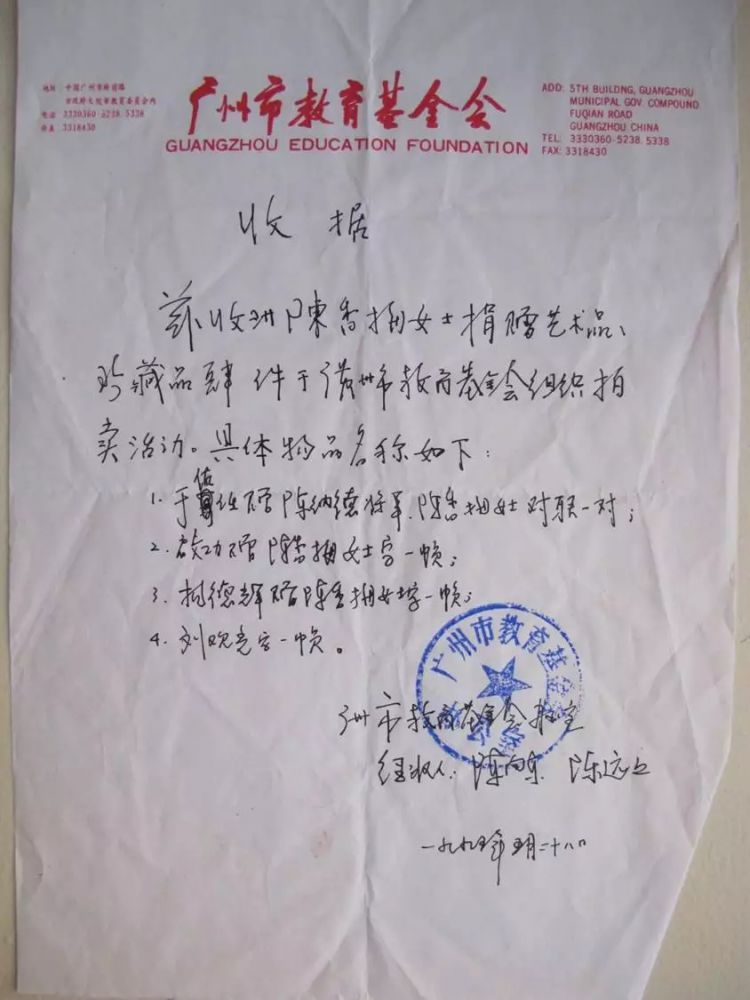 地址：中国广州市府前路
市政府大院市教育委员会内
电话：3330360·5238、5338
传真：3318430
广州市教育基金会
GUANGZHOU EDUCATION FOUNDATION
ADD: 5TH BUILDNG, GUANGZHOU
MUNICIPAL GOV. COMPOUND
FUQIAN ROAD
GUANGZHOU CHINA
TEL: 3330360·5238、5338
FAX: 3318430
收据
兹收到陈香梅女士捐赠艺术品、
珍藏品肆件于广州市教育基金会组织拍
卖活动。具体物品名称如下：
1. 于佑任赠陈纳德将军、陈香梅女士对联一对；
2. 启功赠陈香梅女士字一帧；
3. 柯德辉赠陈香梅女士字一帧；
4. 刘 字一帧。
广州市教育基金会办公室
广州市教育基金会
办公室
经收人：陈向东 陈远
一九九五年五月二十八日